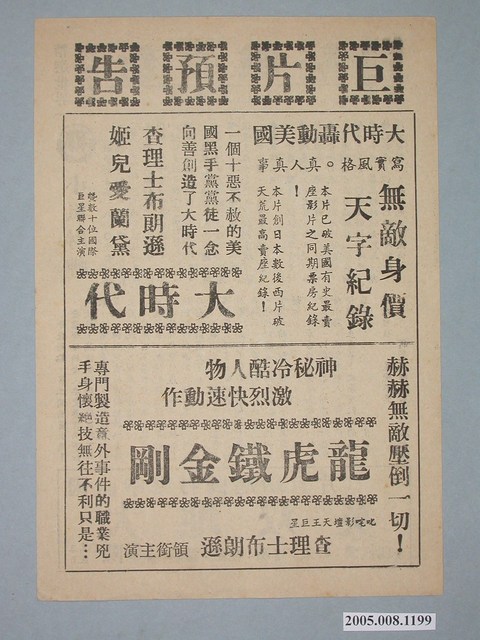 巨片預告
大時代轟動美國
寫實風格。真人真事！
無敵身價
天字紀錄
本片已破美國有史最賣
座影片之同期票房紀錄
本片創日本數後西片破
天荒最高賣座紀錄！
一個十惡不赦的美
國黑手黨黨徒一念
向善創造了大時代
查理士布朗遜
姬兒愛蘭黛
樓數十位國際
巨星聯合主演
大時代
赫赫無敵壓倒一切！
神秘冷酷人物
激烈快速動作
龍虎鐵金剛
叱咤影壇天王巨星
查理士布朗遜 領銜主演
專門製造意外事件的職業兇
手身懷絕技無往不利只是…
2005.008.1199